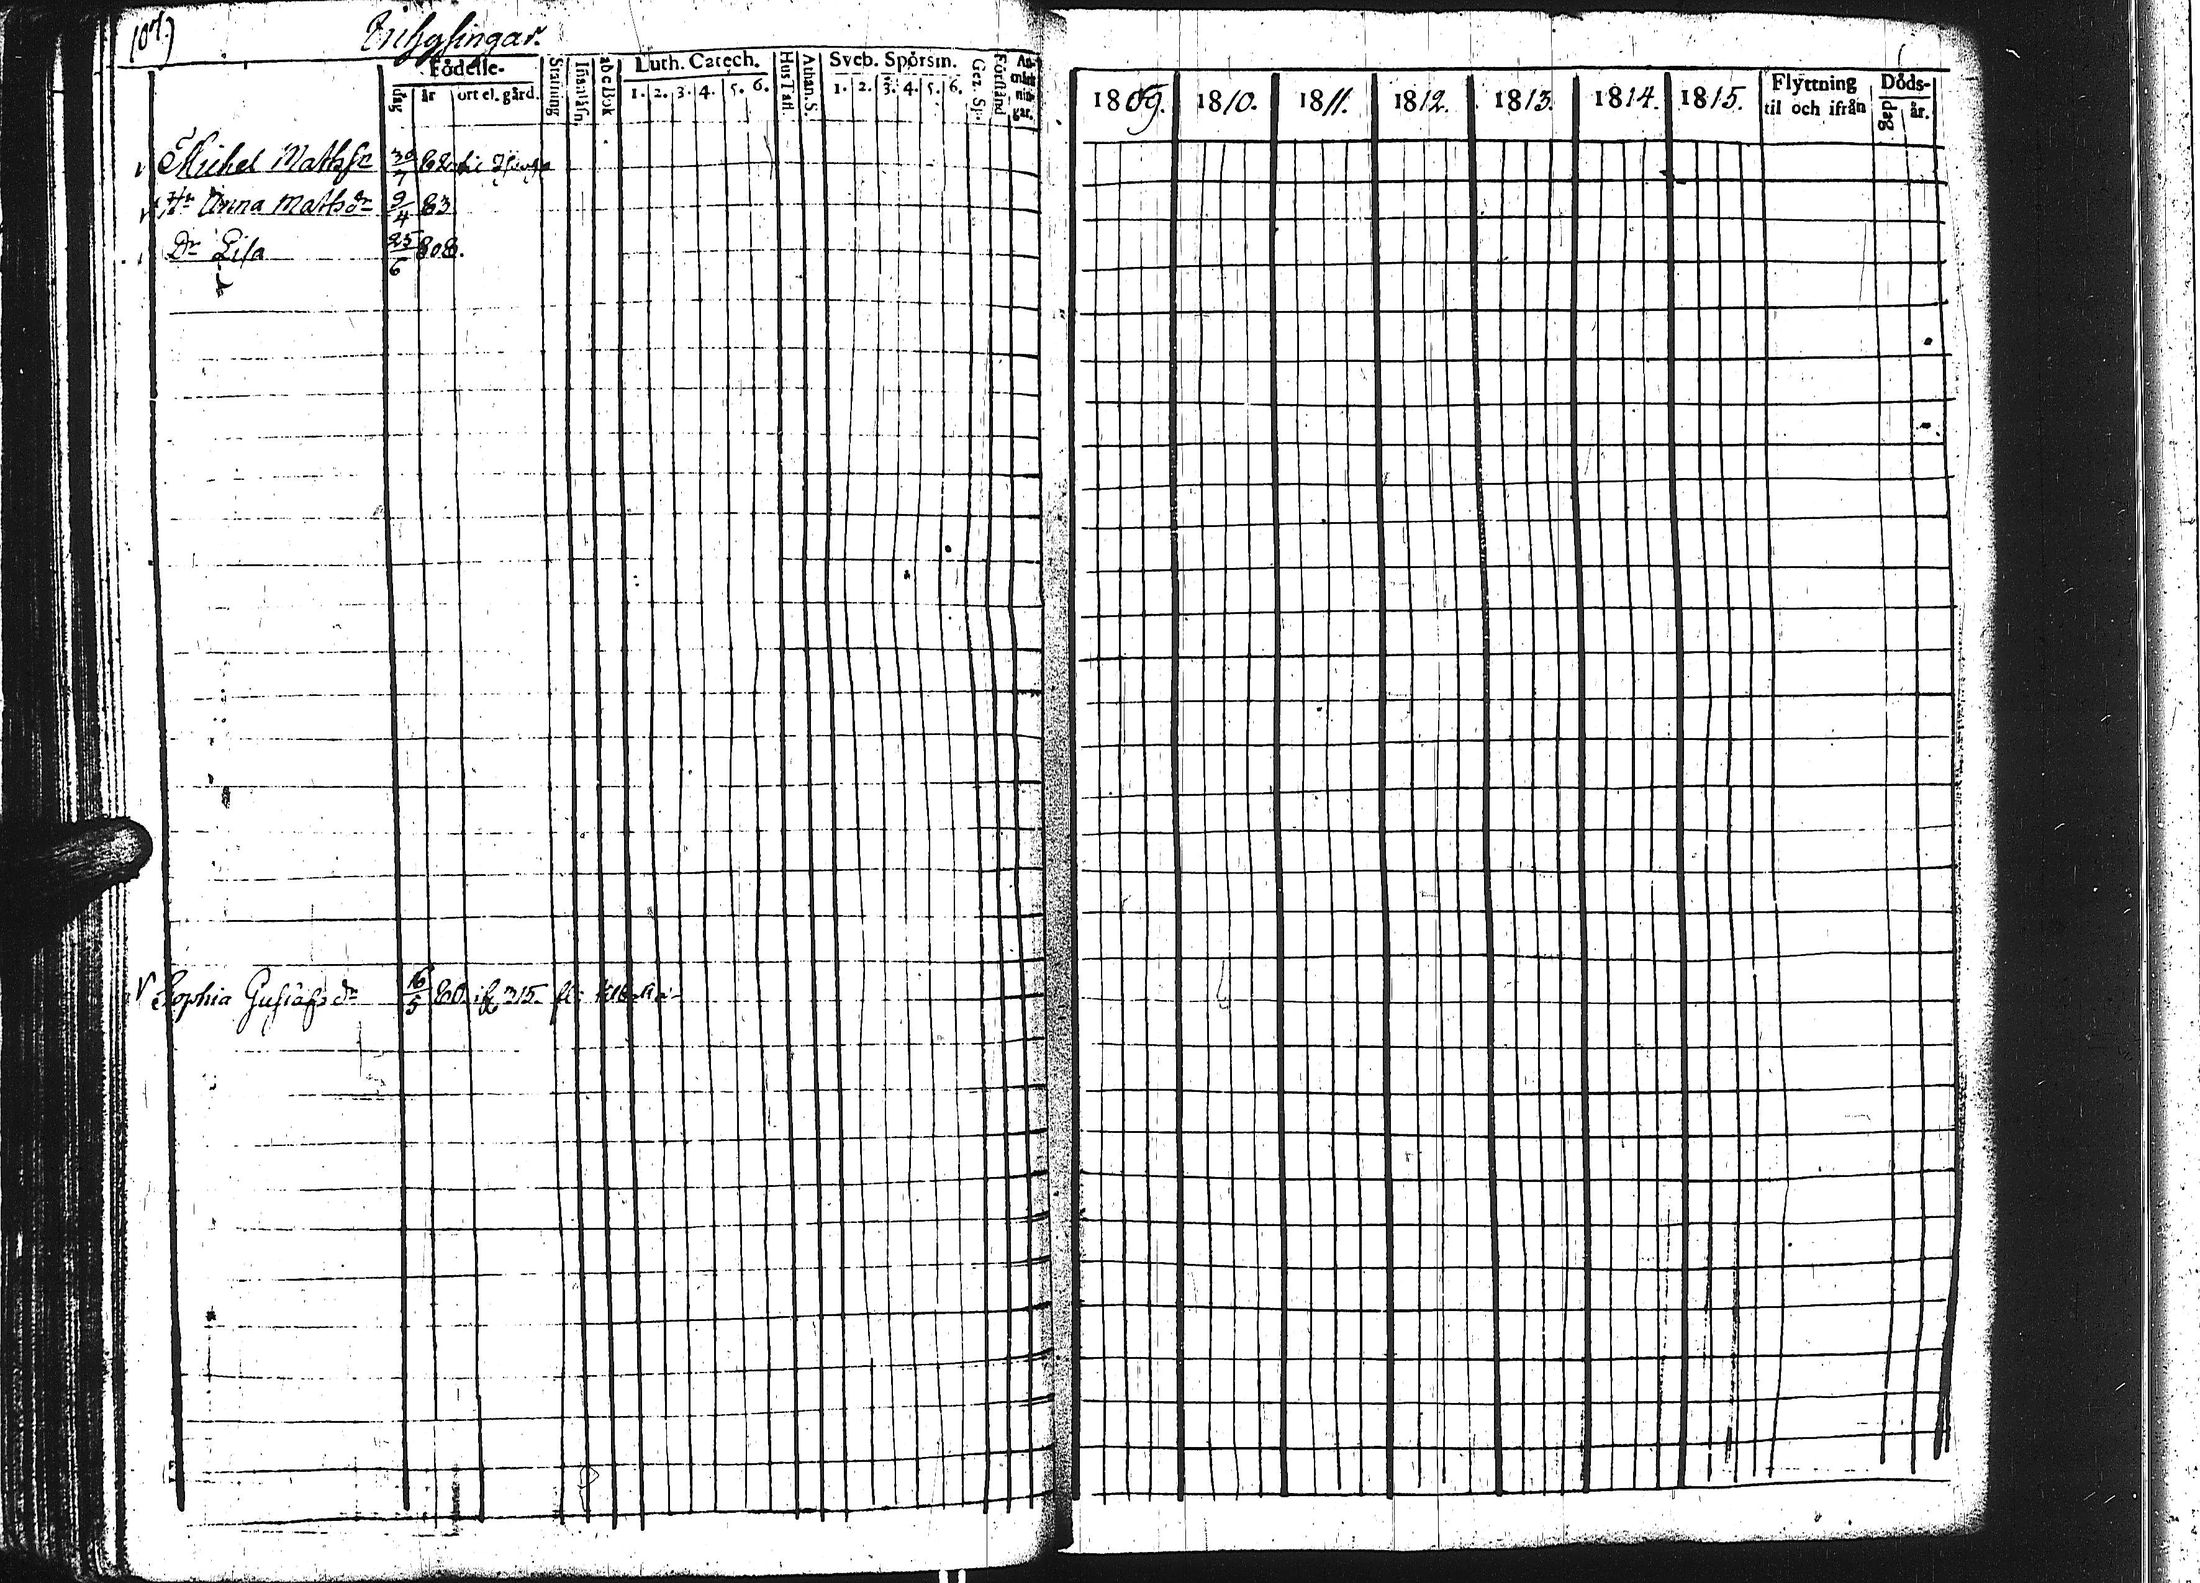 107)
Inhysingar.
Födelse-
dag
år
ort el. gård.
Stafning
Innanläsn
ab c Bok
Luth. Catech.
1. 2. 3. 4. 5. 6.
Hus Tafl.
Athan. S.
Sveb. Spörsm.
1. 2. 3. 4. 5. 6.
Gez. Sp.
Förstånd
An-
märk
nin-
gar.
Michel Mathss
30/7
Hu Anna Mathsdr 9/4 83
Dr Lisa 25/6 808.
Sophia Gustafsdr 16/5 80. 315. fl:
1809. 1810. 1811. 1812. 1813. 1814. 1815.
Flyttning
til och ifrån
Döds-
dag
år.